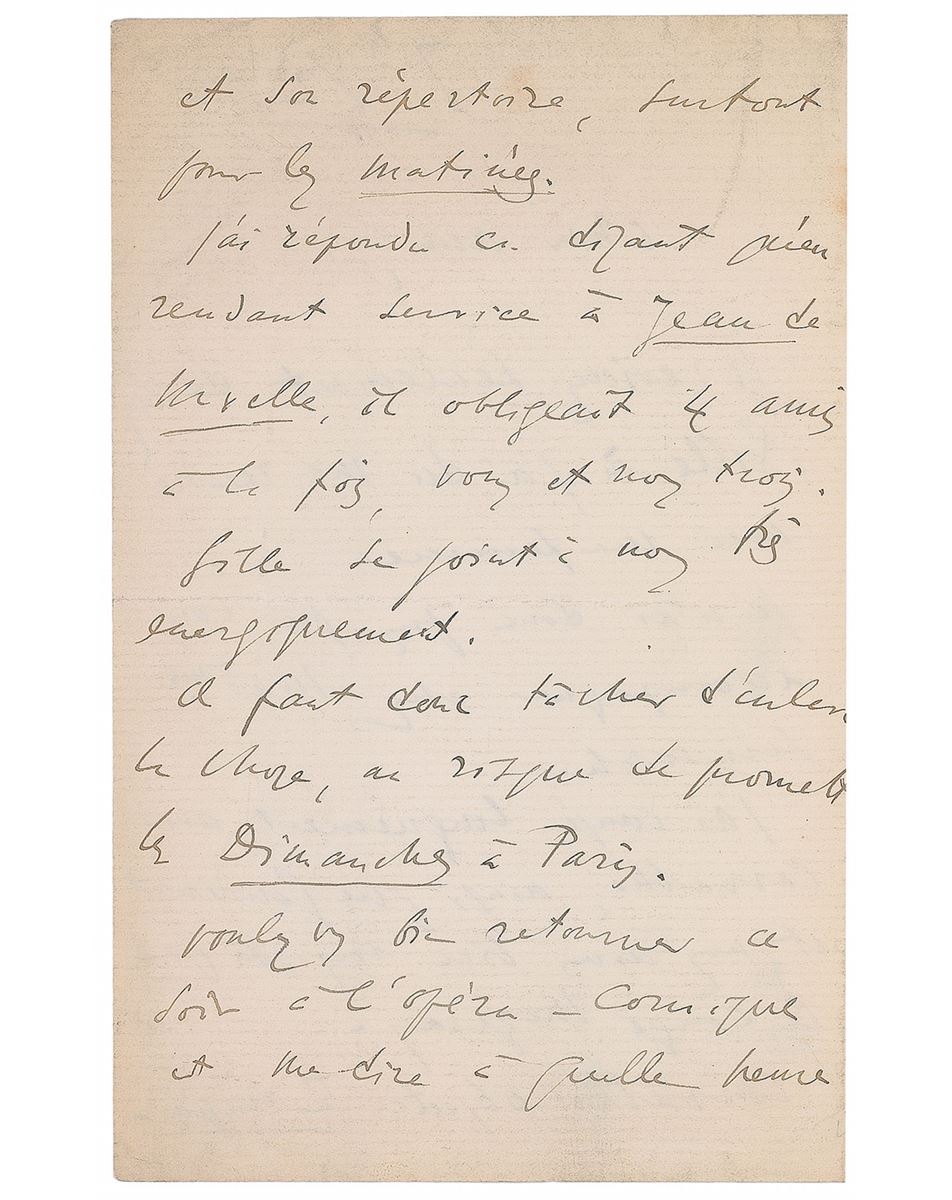 et son répertoire, surtout
pour les matinées.
J'ai répondu en disant qu'en
rendant service à Jean de
Nivelle, il obligeait 4 amis
à la fois, vous et nous trois.
Gille se joint à nous très
energiquement.
Il faut donc tâcher d'enlever
la chose, au risque de promett
les Dimanches à Paris.
voulez vs bien retourner ce
soir à l'opéra-Comique
et me dire à quelle heure